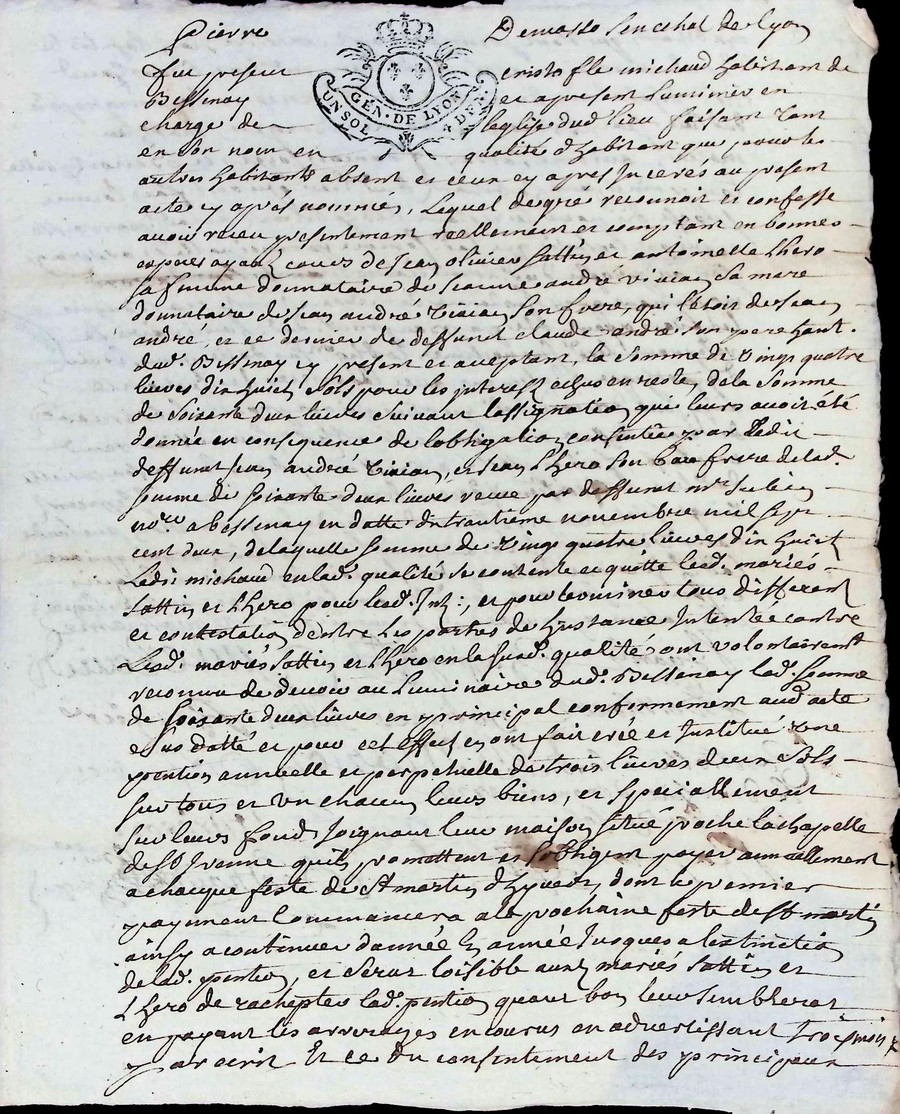 Pierre Demasso Senechal de Lyon
fut present cristofle michaud habitant de
Bessenay et apresent Luminier en
charge de leglise dud. lieu faisant tant
en son nom en qualité d'habitant que pour les
autres habitants absent et ceux cy apres Inserés au present
acte cy aprés nommés, Lequel de gré reconnoit et confesse
avoir receu presentement reellement et comptant en bonnes
especes ayant cours de Jean olivier Sattin et antoinette Lhero
sa femme donnataire de Jeanne andré vivian Sa mere
donnataire de Jean andré Vivian Son frere, qui l'etoit de Jean
andré, et ce dernier de deffunct claude andré son pere habt.
dud. Bessenay cy present et aceptant, la Somme de Vingt quatre
livres dix huict Sols pour les interest echus en reste de la Somme
de Soixante deux livres Suivant lassignation qui leurs avoit été
donnée en consequence de lobligation consentie par Ledit
deffunct Jean andré Vivian, et Jean Lhero Son beau frere de lad.
Somme de Soixante deux livres receue par deffunct mre.
nore. a bessenay en datte du trantieme novembre mil sept
cent deux, de laquelle Somme de Vingt quatre livres dix huict
Ledit michaud en lad. qualité Se contente et quitte lesd. mariés
Sattin et Lhero pour lesd. Int:, et pour terminer tous different
et contestation d'entre Les parties de Linstance Intentée contre
Lesd. mariés Sattin et Lhero en la Susd. qualité, ont volontairemt.
reconnu de devoir au Luminaire dud. Bessenay lad. Somme
de Soixante deux livres en principal conformement aud. acte
e Sus datté et pour cet effect en ont fait créé et Institué Une
pention annuelle et perpetuelle de trois livres deux Sols
Sur tous et Un chacun leurs biens, et Speciallement
Sur leurs fond Joignant leur maison Situé proche la chapelle
de St. Irenne quils promettent et Sobligent payer annuellement
a chacque feste de St. martin d'hyver, dont le premier
payment Commancera a la prochaine feste de St. martin
ainsy a continuer d'année En année Jusques a lextinction
de lad. pention, et Serat loisible auxd. mariés Sattin et
Lhero de rachepter lad. pention quant bon leur Semblerat
en payant les arrerages encourus en advertissant trois mois
par ecrit Et ce du consentement des principaux
GEN. DE LYON
UN SOL 4 D.